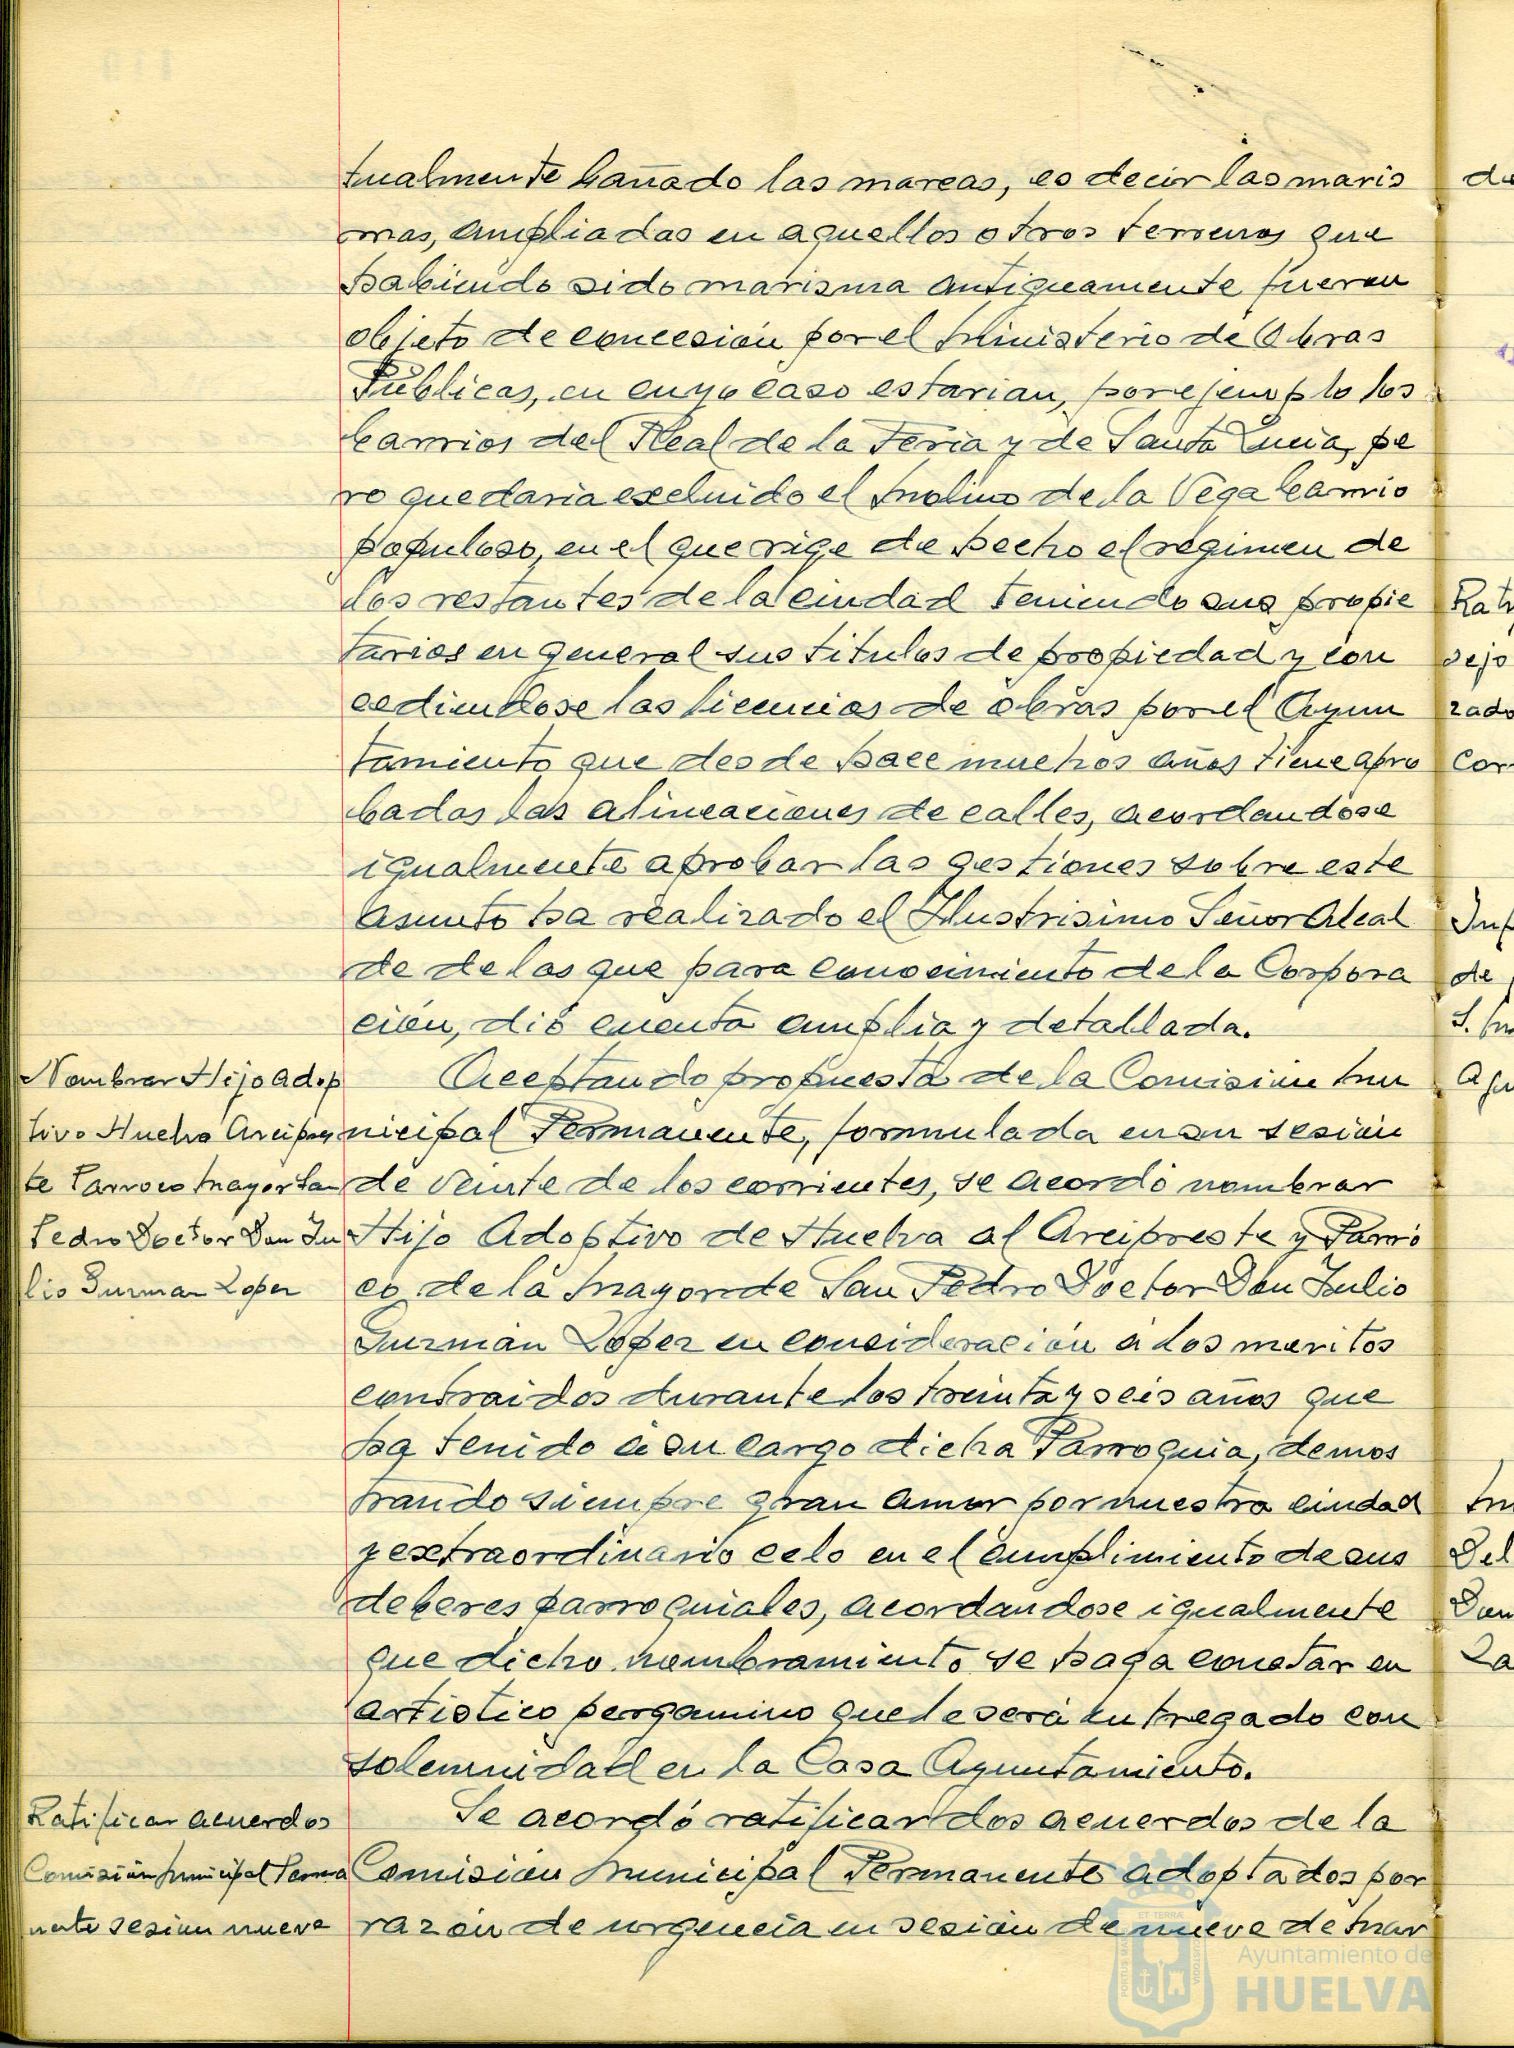 tualmente bañado las mareas, es decir las maris
mas, ampliadas en aquellos otros terrenos que
habiendo sido marisma antiguamente fueran
objeto de concesión por el Ministerio de Obras
Públicas, en cuyo caso estarian, por ejemplo los
barrios del Real de la Feria y de Santa Lucia, pe
ro quedaria excluido el Molino de la Vega barrio
populoso, en el que rige de hecho el régimen de
los restantes de la ciudad teniendo sus propie
tarios en general sus titulos de propiedad y con
cediendose las licencias de obras por el Ayun
tamiento que desde hace muchos años tiene apro
badas las alineaciones de calles, acordandose
igualmente aprobar las gestiones sobre este
asunto ha realizado el Ilustrisimo Señor Alcal
de de las que para conocimiento de la Corpora
ción, dió cuenta amplia y detallada.
Nombrar Hijo Adop
tivo Huelva Arcipres
te Parroco Mayor San
Pedro Doctor Don Ju
lio Guzman Lopez
Aceptando propuesta de la Comisión Mu
nicipal Permanente, formulada en su sesión
de veinte de los corrientes, se acordó nombrar
Hijo Adoptivo de Huelva al Arcipreste y Párro
co de la Mayor de San Pedro Doctor Don Julio
Guzmán López en consideración a los meritos
contraidos durante los treinta y seis años que
ha tenido a su cargo dicha Parroquia, demos
trando siempre gran amor por nuestra ciudad
y extraordinario celo en el cumplimiento de sus
deberes parroquiales, acordandose igualmente
que dicho nombramiento se haga constar en
artistico pergamino que le será entregado con
solemnidad en la Casa Ayuntamiento.
Ratificar acuerdos
Comisión Municipal Perma
nente sesion nueve
Se acordó ratificar los acuerdos de la
Comisión Municipal Permanente adoptados por
razón de urgencia en sesión de nueve de Mar
de
Rat
sejo
zado
Cor
de
Del
Don
ET TERRAE
Ayuntamiento de
HUELVA